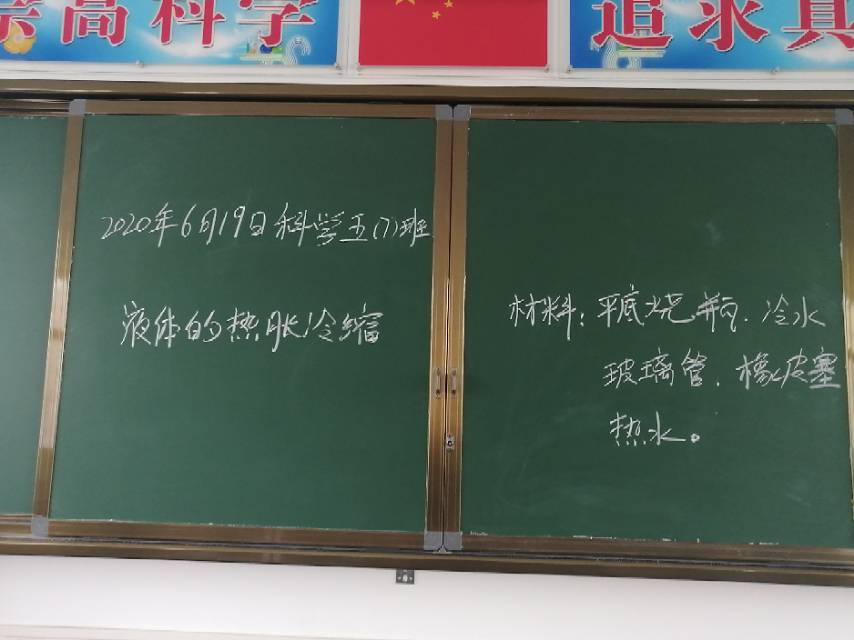 崇高科学
追求真
2020年6月19日科学五(7)班
液体的热胀冷缩
材料：平底烧瓶、冷水
玻璃管、橡皮塞
热水。